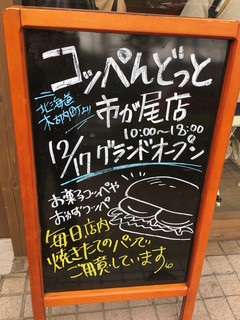 コッペんどっと
北海道
木古内町より
市が尾店
10:00〜18:00
12/17 グランドオープン
お菓子コッペや
おかずコッペ
毎日店内
焼きたてのパンで
ご用意しています。